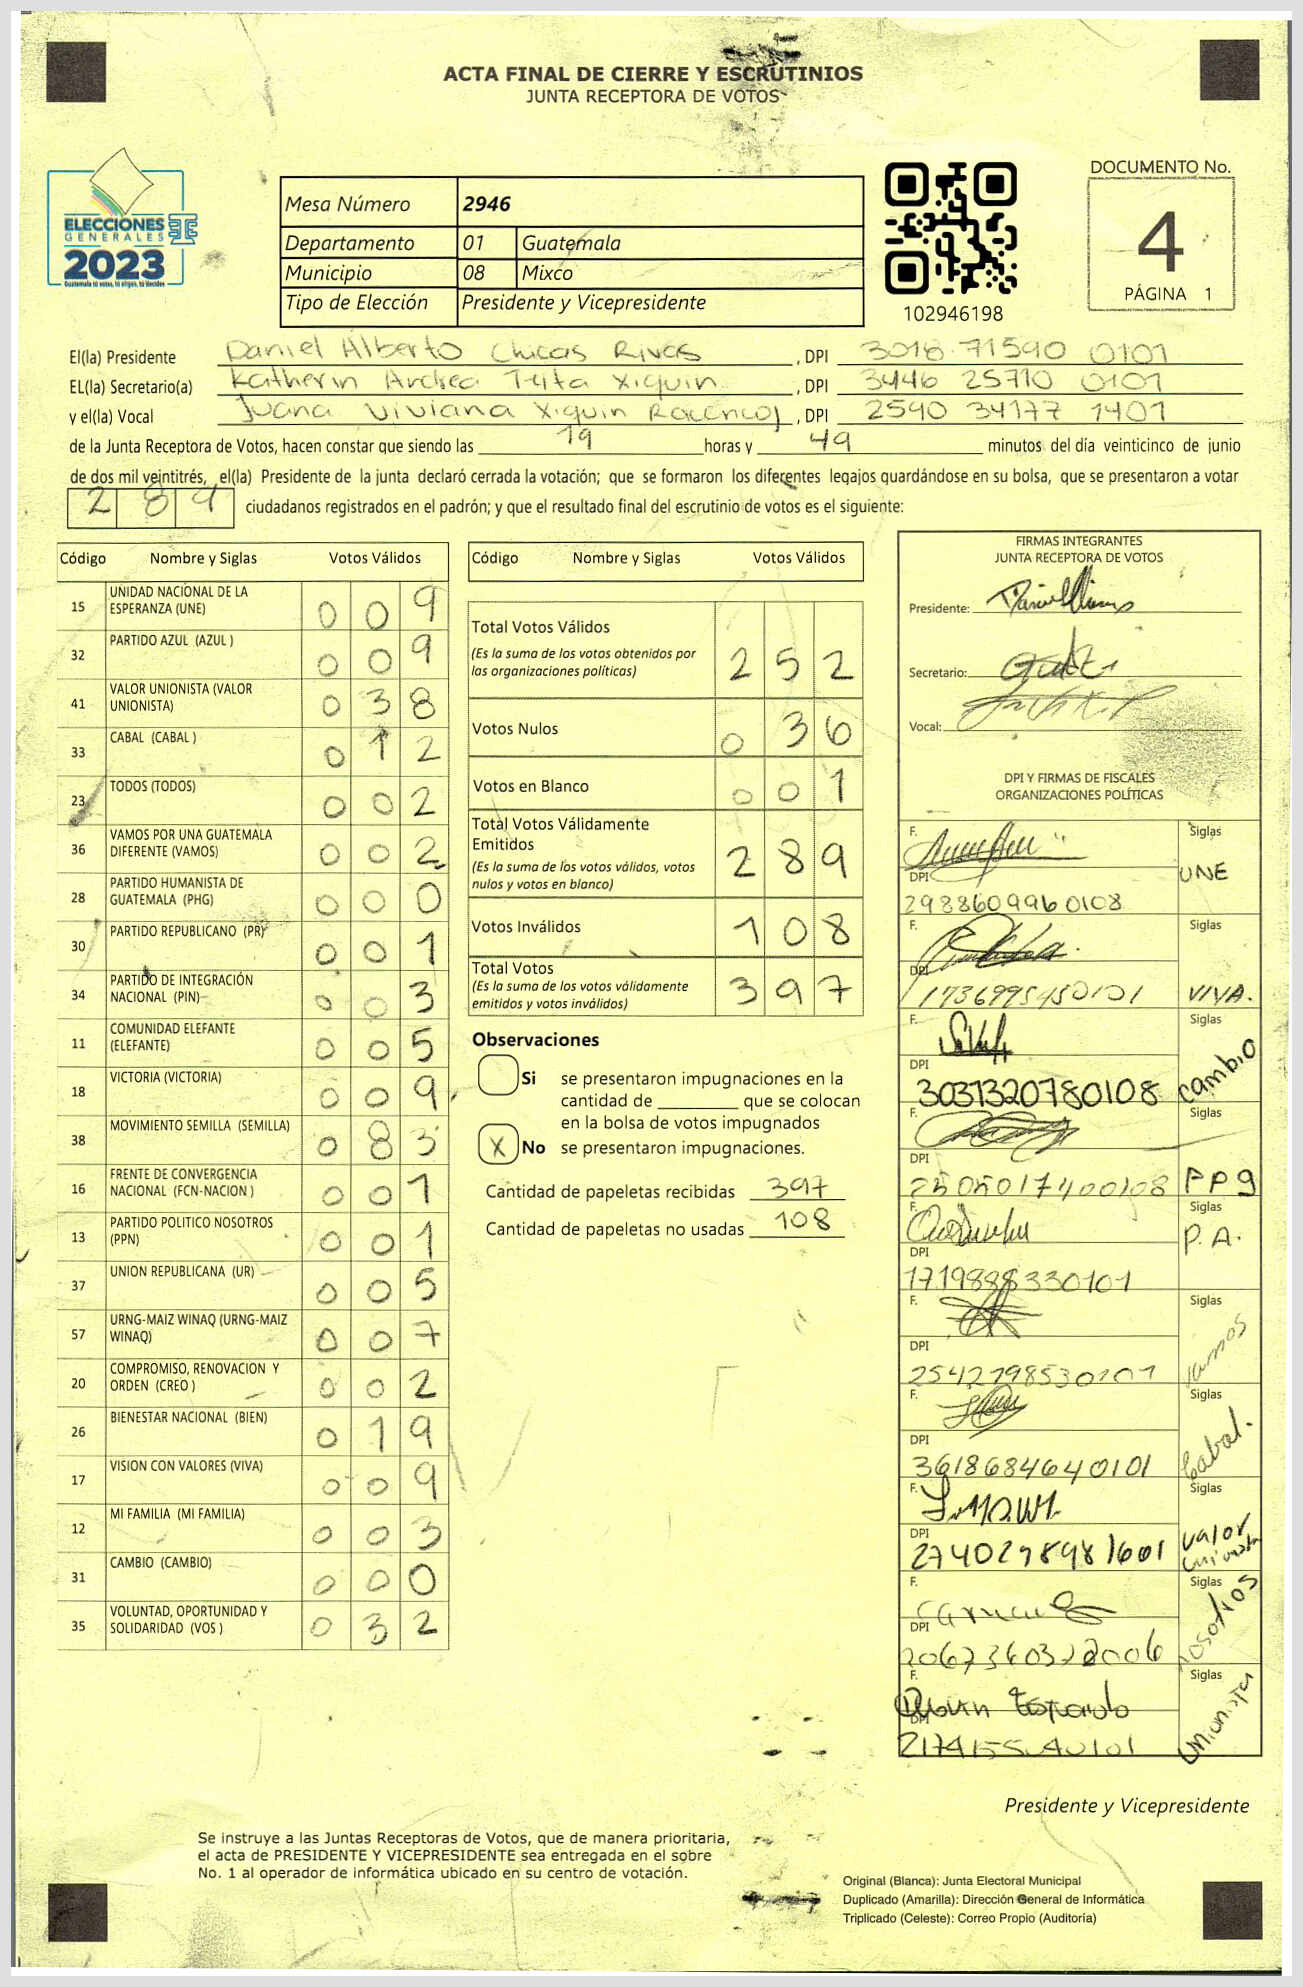 ACTA FINAL DE CIERRE Y ESCRUTINIOS
JUNTA RECEPTORA DE VOTOS
ELECCIONES
GENERALES
2023
Guatemala tú votas, tú eliges, tú decides
Mesa Número 2946
Departamento 01 Guatemala
Municipio 08 Mixco
Tipo de Elección Presidente y Vicepresidente
102946198
DOCUMENTO No.
4
PÁGINA 1
El(la) Presidente Daniel Alberto Chicas Rivas, DPI 3018 71590 0101
EL(la) Secretario(a) Katherin Andrea Xiquin, DPI 3446 25710 0101
y el(la) Vocal Juana Viviana Xiquin, DPI 2590 34177 1401
de la Junta Receptora de Votos, hacen constar que siendo las 19 horas y 49 minutos del día veinticinco de junio
de dos mil veintitrés, el(la) Presidente de la junta declaró cerrada la votación; que se formaron los diferentes legajos guardándose en su bolsa, que se presentaron a votar
289 ciudadanos registrados en el padrón; y que el resultado final del escrutinio de votos es el siguiente:
Código Nombre y Siglas Votos Válidos
15 UNIDAD NACIONAL DE LA ESPERANZA (UNE) 0 0 9
32 PARTIDO AZUL (AZUL ) 0 0 9
41 VALOR UNIONISTA (VALOR UNIONISTA) 0 3 8
33 CABAL (CABAL ) 0 1 2
23 TODOS (TODOS) 0 0 2
36 VAMOS POR UNA GUATEMALA DIFERENTE (VAMOS) 0 0 2
28 PARTIDO HUMANISTA DE GUATEMALA (PHG) 0 0 0
30 PARTIDO REPUBLICANO (PR) 0 0 1
34 PARTIDO DE INTEGRACIÓN NACIONAL (PIN) 0 0 3
11 COMUNIDAD ELEFANTE (ELEFANTE) 0 0 5
18 VICTORIA (VICTORIA) 0 0 9
38 MOVIMIENTO SEMILLA (SEMILLA) 0 8 3
16 FRENTE DE CONVERGENCIA NACIONAL (FCN-NACION ) 0 0 1
13 PARTIDO POLITICO NOSOTROS (PPN) 0 0 1
37 UNION REPUBLICANA (UR) 0 0 5
57 URNG-MAIZ WINAQ (URNG-MAIZ WINAQ) 0 0 7
20 COMPROMISO, RENOVACION Y ORDEN (CREO ) 0 0 2
26 BIENESTAR NACIONAL (BIEN) 0 1 9
17 VISION CON VALORES (VIVA) 0 0 9
12 MI FAMILIA (MI FAMILIA) 0 0 3
31 CAMBIO (CAMBIO) 0 0 0
35 VOLUNTAD, OPORTUNIDAD Y SOLIDARIDAD (VOS ) 0 3 2
Código Nombre y Siglas Votos Válidos
Total Votos Válidos 2 5 2
(Es la suma de los votos obtenidos por
las organizaciones políticas)
Votos Nulos 0 3 6
Votos en Blanco 0 0 1
Total Votos Válidamente
Emitidos 2 8 9
(Es la suma de los votos válidos, votos
nulos y votos en blanco)
Votos Inválidos 1 0 8
Total Votos 3 9 7
(Es la suma de los votos válidamente
emitidos y votos inválidos)
Observaciones
Si se presentaron impugnaciones en la
cantidad de ________ que se colocan
en la bolsa de votos impugnados
X No se presentaron impugnaciones.
Cantidad de papeletas recibidas 397
Cantidad de papeletas no usadas 108
FIRMAS INTEGRANTES
JUNTA RECEPTORA DE VOTOS
Presidente:
Secretario:
Vocal:
DPI Y FIRMAS DE FISCALES
ORGANIZACIONES POLÍTICAS
F. Siglas
DPI UNE
2988609960108
F. Siglas
DPI VIVA.
F. Siglas
DPI cambio
3031320780108
F. Siglas
DPI PPg
F. Siglas
DPI P.A.
F. Siglas
DPI
F. Siglas
DPI Cabal.
3618684640101
F. Siglas
DPI valor
2740298981601
F. Siglas
DPI nosotros
F. Siglas
DPI unionista
Presidente y Vicepresidente
Se instruye a las Juntas Receptoras de Votos, que de manera prioritaria,
el acta de PRESIDENTE Y VICEPRESIDENTE sea entregada en el sobre
No. 1 al operador de informática ubicado en su centro de votación.
Original (Blanca): Junta Electoral Municipal
Duplicado (Amarilla): Dirección General de Informática
Triplicado (Celeste): Correo Propio (Auditoría)